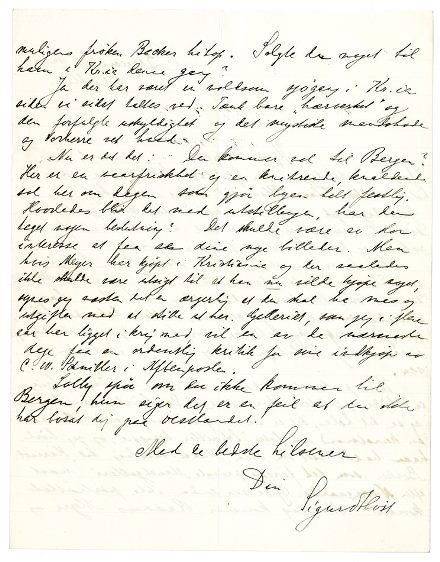 muligens frøken Backer hitop. Solgte du noget til
ham i Kr.ia denne gang?
Ja der har været et voldsom sjøgang i Kr.ia
siden vi sidst taltes ved. Tænk bare "hærverket" og
den forfulgte uskyldighed og det mystiske
og Vorherre ved hvad.
Nu er det det: Du kommer vel til Bergen?
Her er en vaarfriskhet og en knitrende, knaldende
sol her om dagen som gjør byen helt festlig.
Hvorledes blir det med utstillingen, har den
noget nogen betydning? Det skulde være av stor
interesse at faa se dine nye billeder. Men
hvis Meyer har kjøpt i Kristiania og der saaledes
ikke skulde være utsigt til at han nu vilde kjøpe noget,
synes jeg næsten det er ærgerlig at du skal ha mas og
utgifter med at stille ut her. Galleriet, som jeg i flere
aar har ligget i krig med vil en av de nærmeste
dage faa en ordentlig kritik for sine indkjøp av
C. W. i Aftenposten.
Lolly spør om du ikke kommer til
Bergen, hun siger det er en feil at du ikke
har bosat dig paa vestlandet.
Med de bedste hilsener
Din
Sigurd Høst